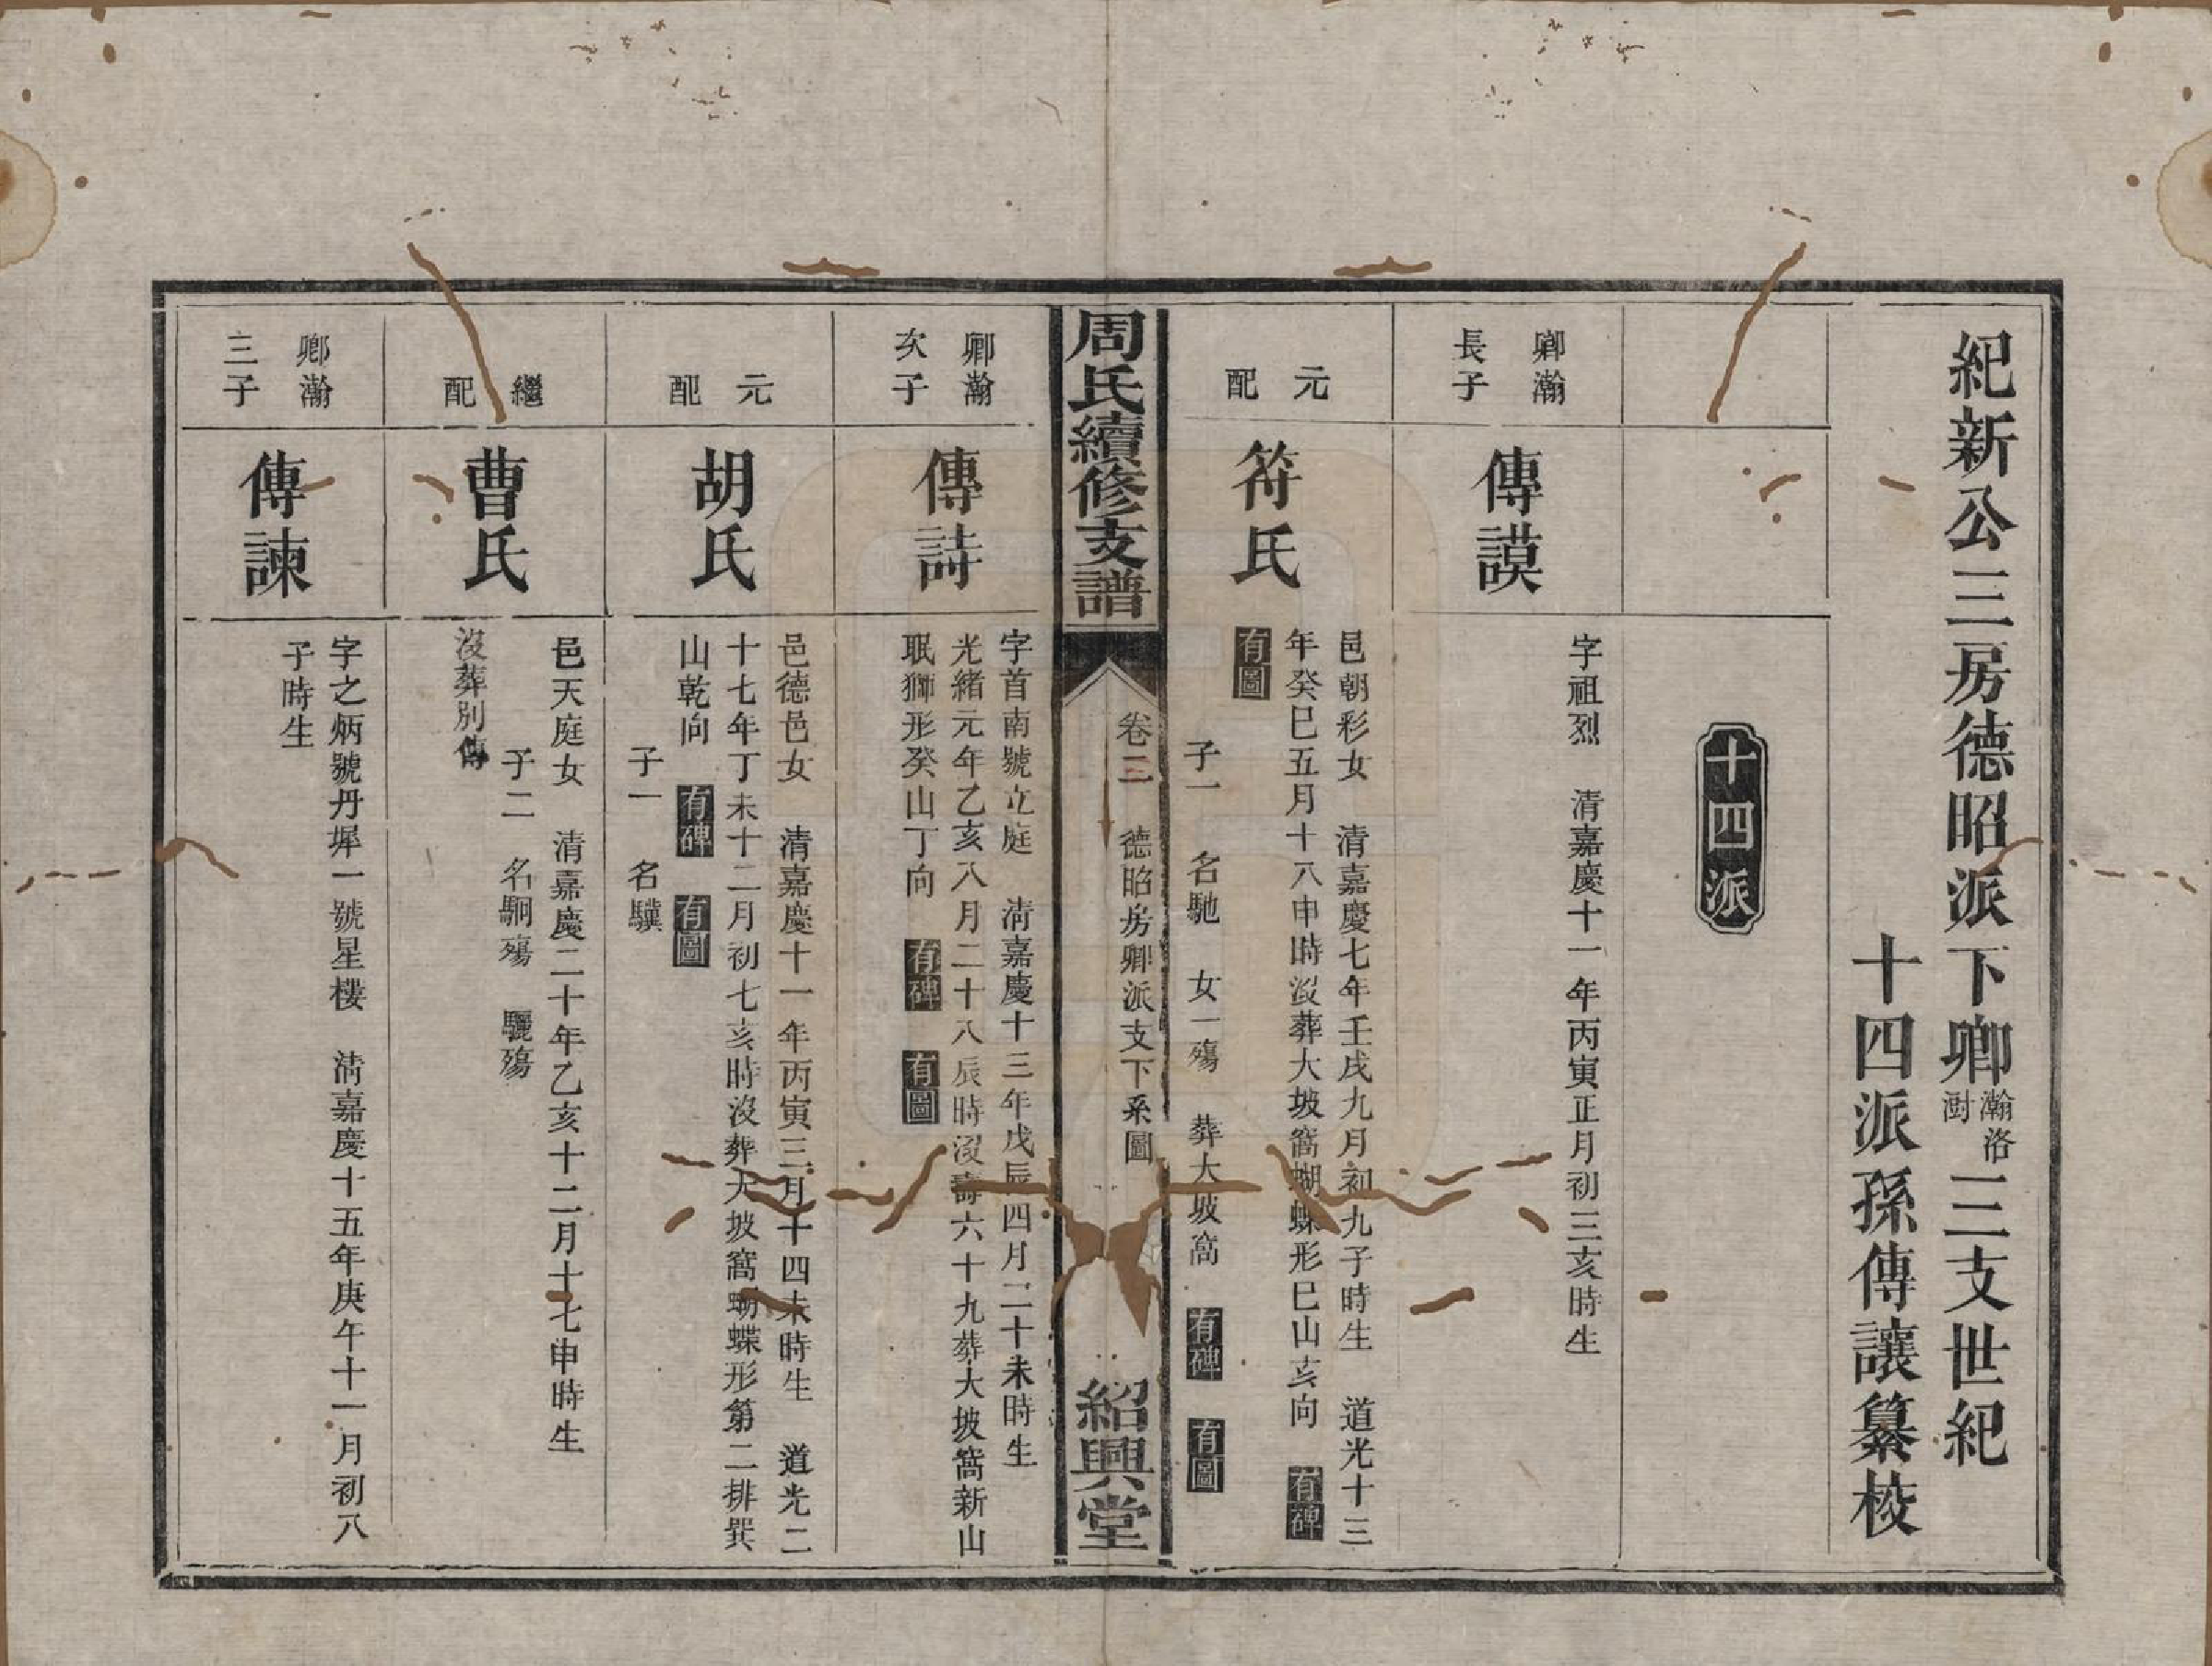 紀新公三房德昭派下卿瀚洛澍三支世紀
十四派孫傳讓纂校
十四派
卿瀚
長子
傳謨
字祖烈 清嘉慶十一年丙寅正月初三亥時生
元配
符氏
邑朝彩女 清嘉慶七年壬戌九月初九子時生 道光十三
年癸巳五月十八申時沒葬大坡窩蝴蝶形巳山亥向 有碑
有圖
子一 名馳 女一殤 葬大坡窩 有碑 有圖
周氏續修支譜
卷三 德昭房卿派支下系圖
紹興堂
卿瀚
次子
傳詩
字首南號立庭 清嘉慶十三年戊辰四月二十未時生
光緒元年乙亥八月二十八辰時沒壽六十九葬大坡窩新山
眠獅形癸山丁向 有碑 有圖
元配
胡氏
邑德邑女 清嘉慶十一年丙寅三月十四未時生 道光二
十七年丁未十二月初七亥時沒葬大坡窩蝴蝶形第二排巽
山乾向 有碑 有圖
子一 名驥
繼配
曹氏
邑天庭女 清嘉慶二十年乙亥十二月十七申時生
子二 名駉殤 驪殤
沒葬別傳
卿瀚
三子
傳諫
字之炳號丹墀一號星樓 清嘉慶十五年庚午十一月初八
子時生